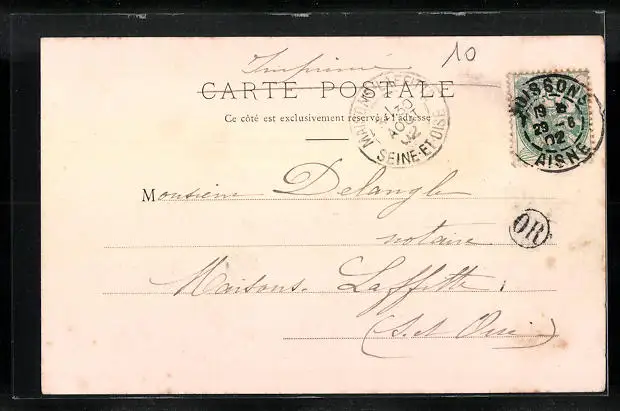 Imprimé
10
CARTE POSTALE
Ce côté est exclusivement réservé à l'adresse
SEINE-ET-OISE
30
AOUT
02
SISSONE
19
29 8
02
AISNE
Monsieur Delangle
notaire
OR
Maisons-Laffitte
(S. et Oise)